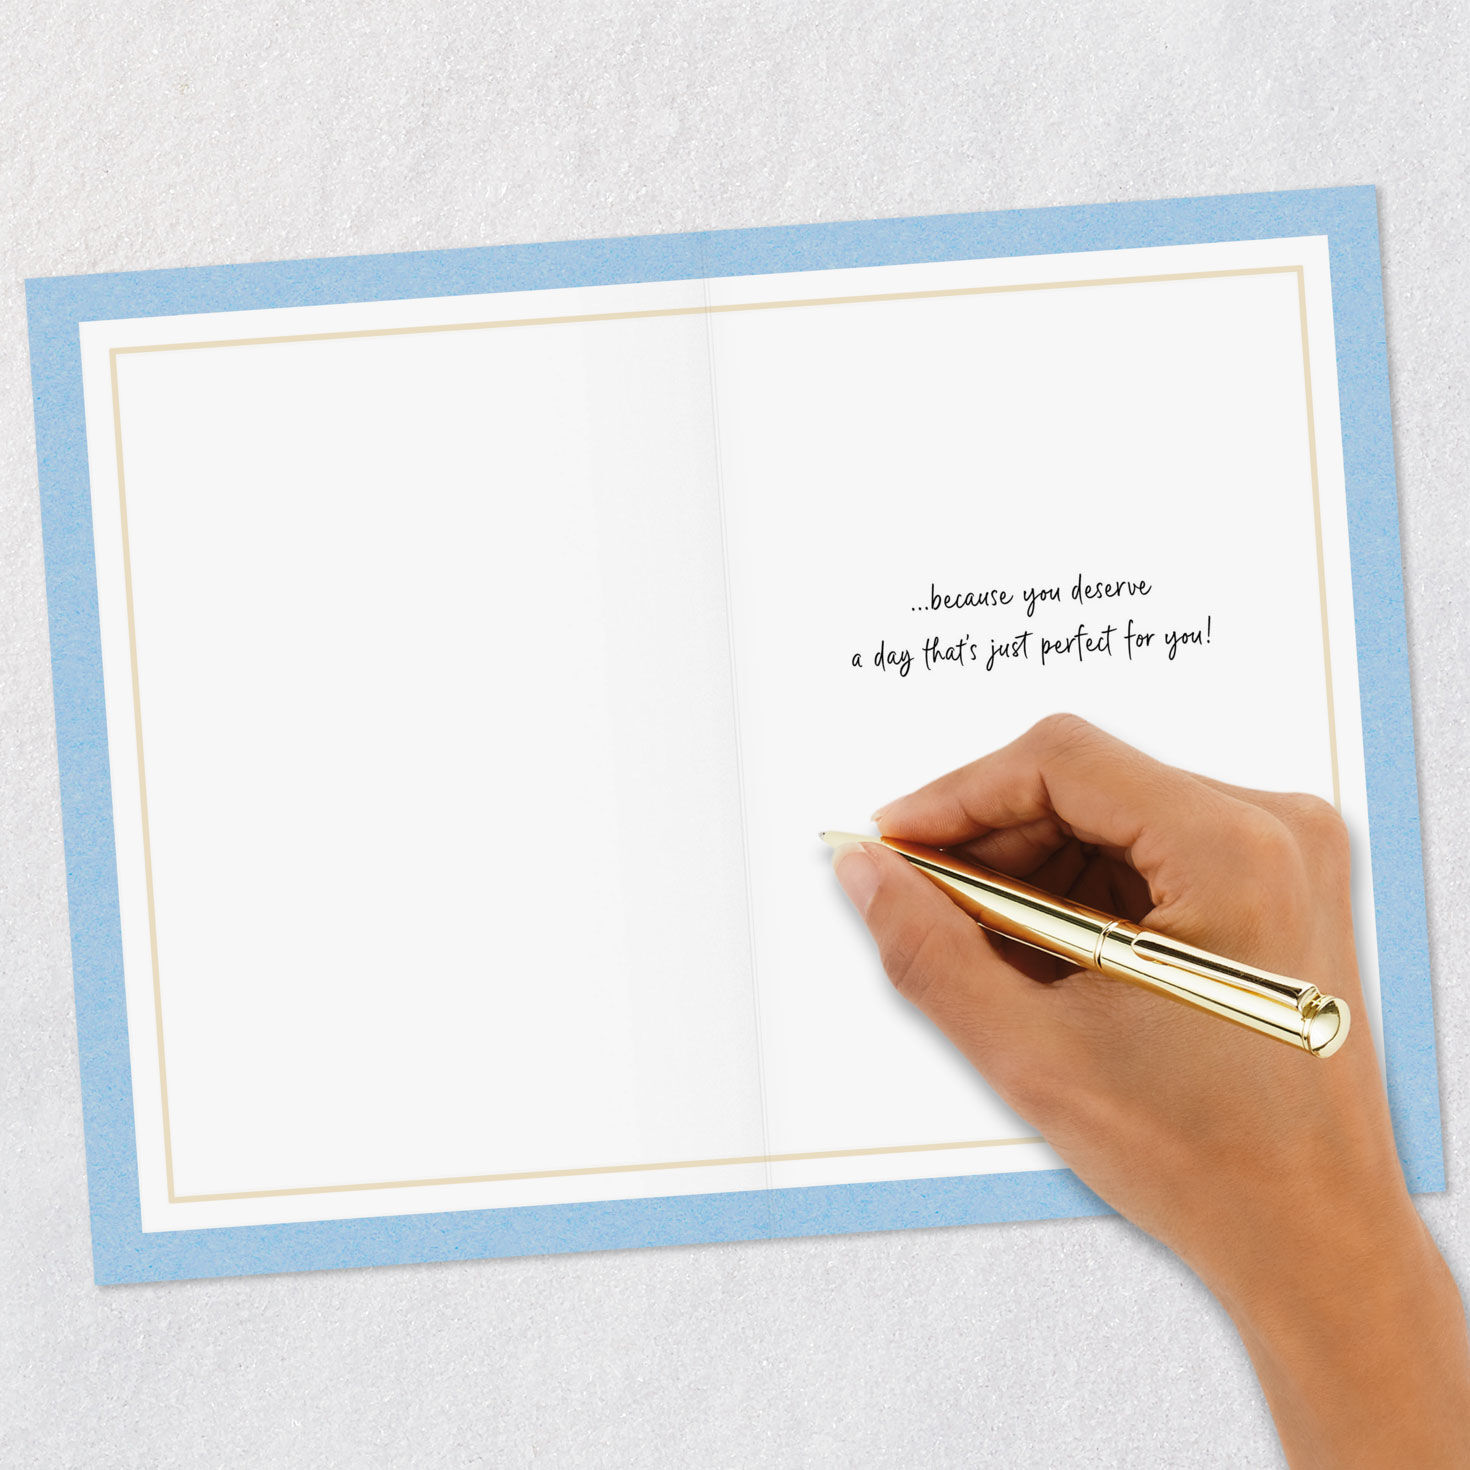 ...because you deserve
a day that's just perfect for you!